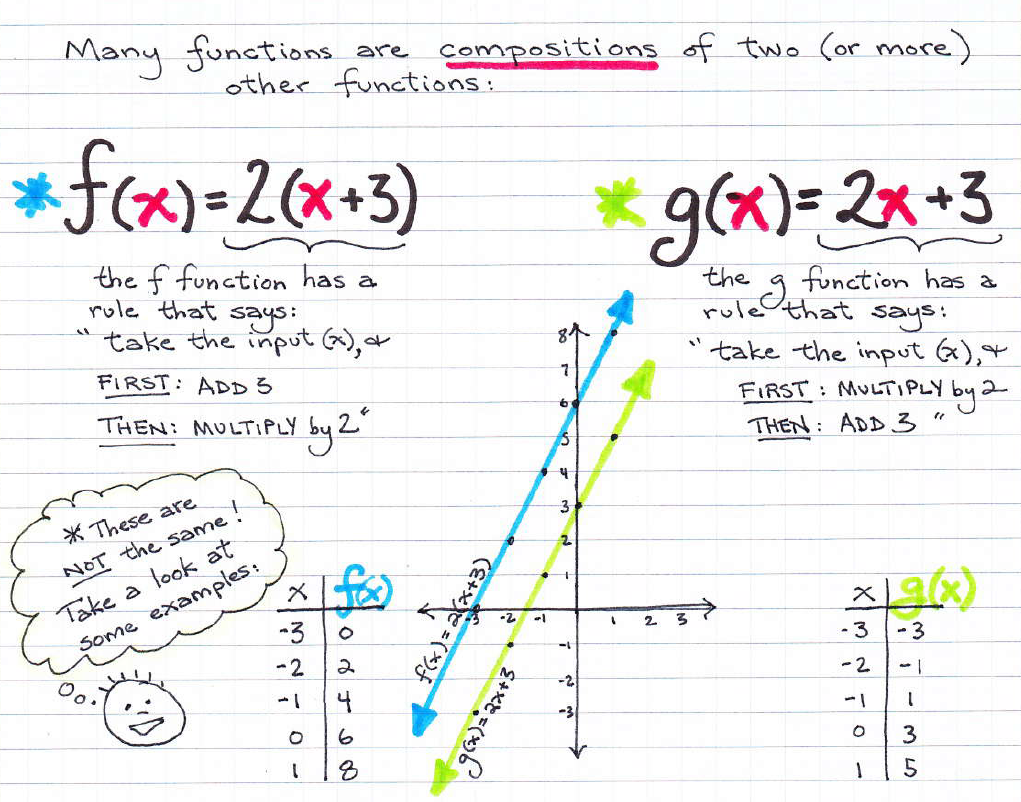 Many functions are compositions of two (or more)
other functions:
* f(x) = 2(x+3)
the f function has a
rule that says:
" take the input (x), &
FIRST: ADD 3
THEN: MULTIPLY by 2 "
* g(x) = 2x+3
the g function has a
rule that says:
" take the input (x), &
FIRST: MULTIPLY by 2
THEN: ADD 3 "
* These are
NOT the same!
Take a look at
some examples:
x f(x)
-3 0
-2 2
-1 4
0 6
1 8
8
7
6
5
4
3
2
1
-3 -2 -1 1 2 3
-1
-2
-3
f(x) = 2(x+3)
g(x) = 2x+3
x g(x)
-3 -3
-2 -1
-1 1
0 3
1 5